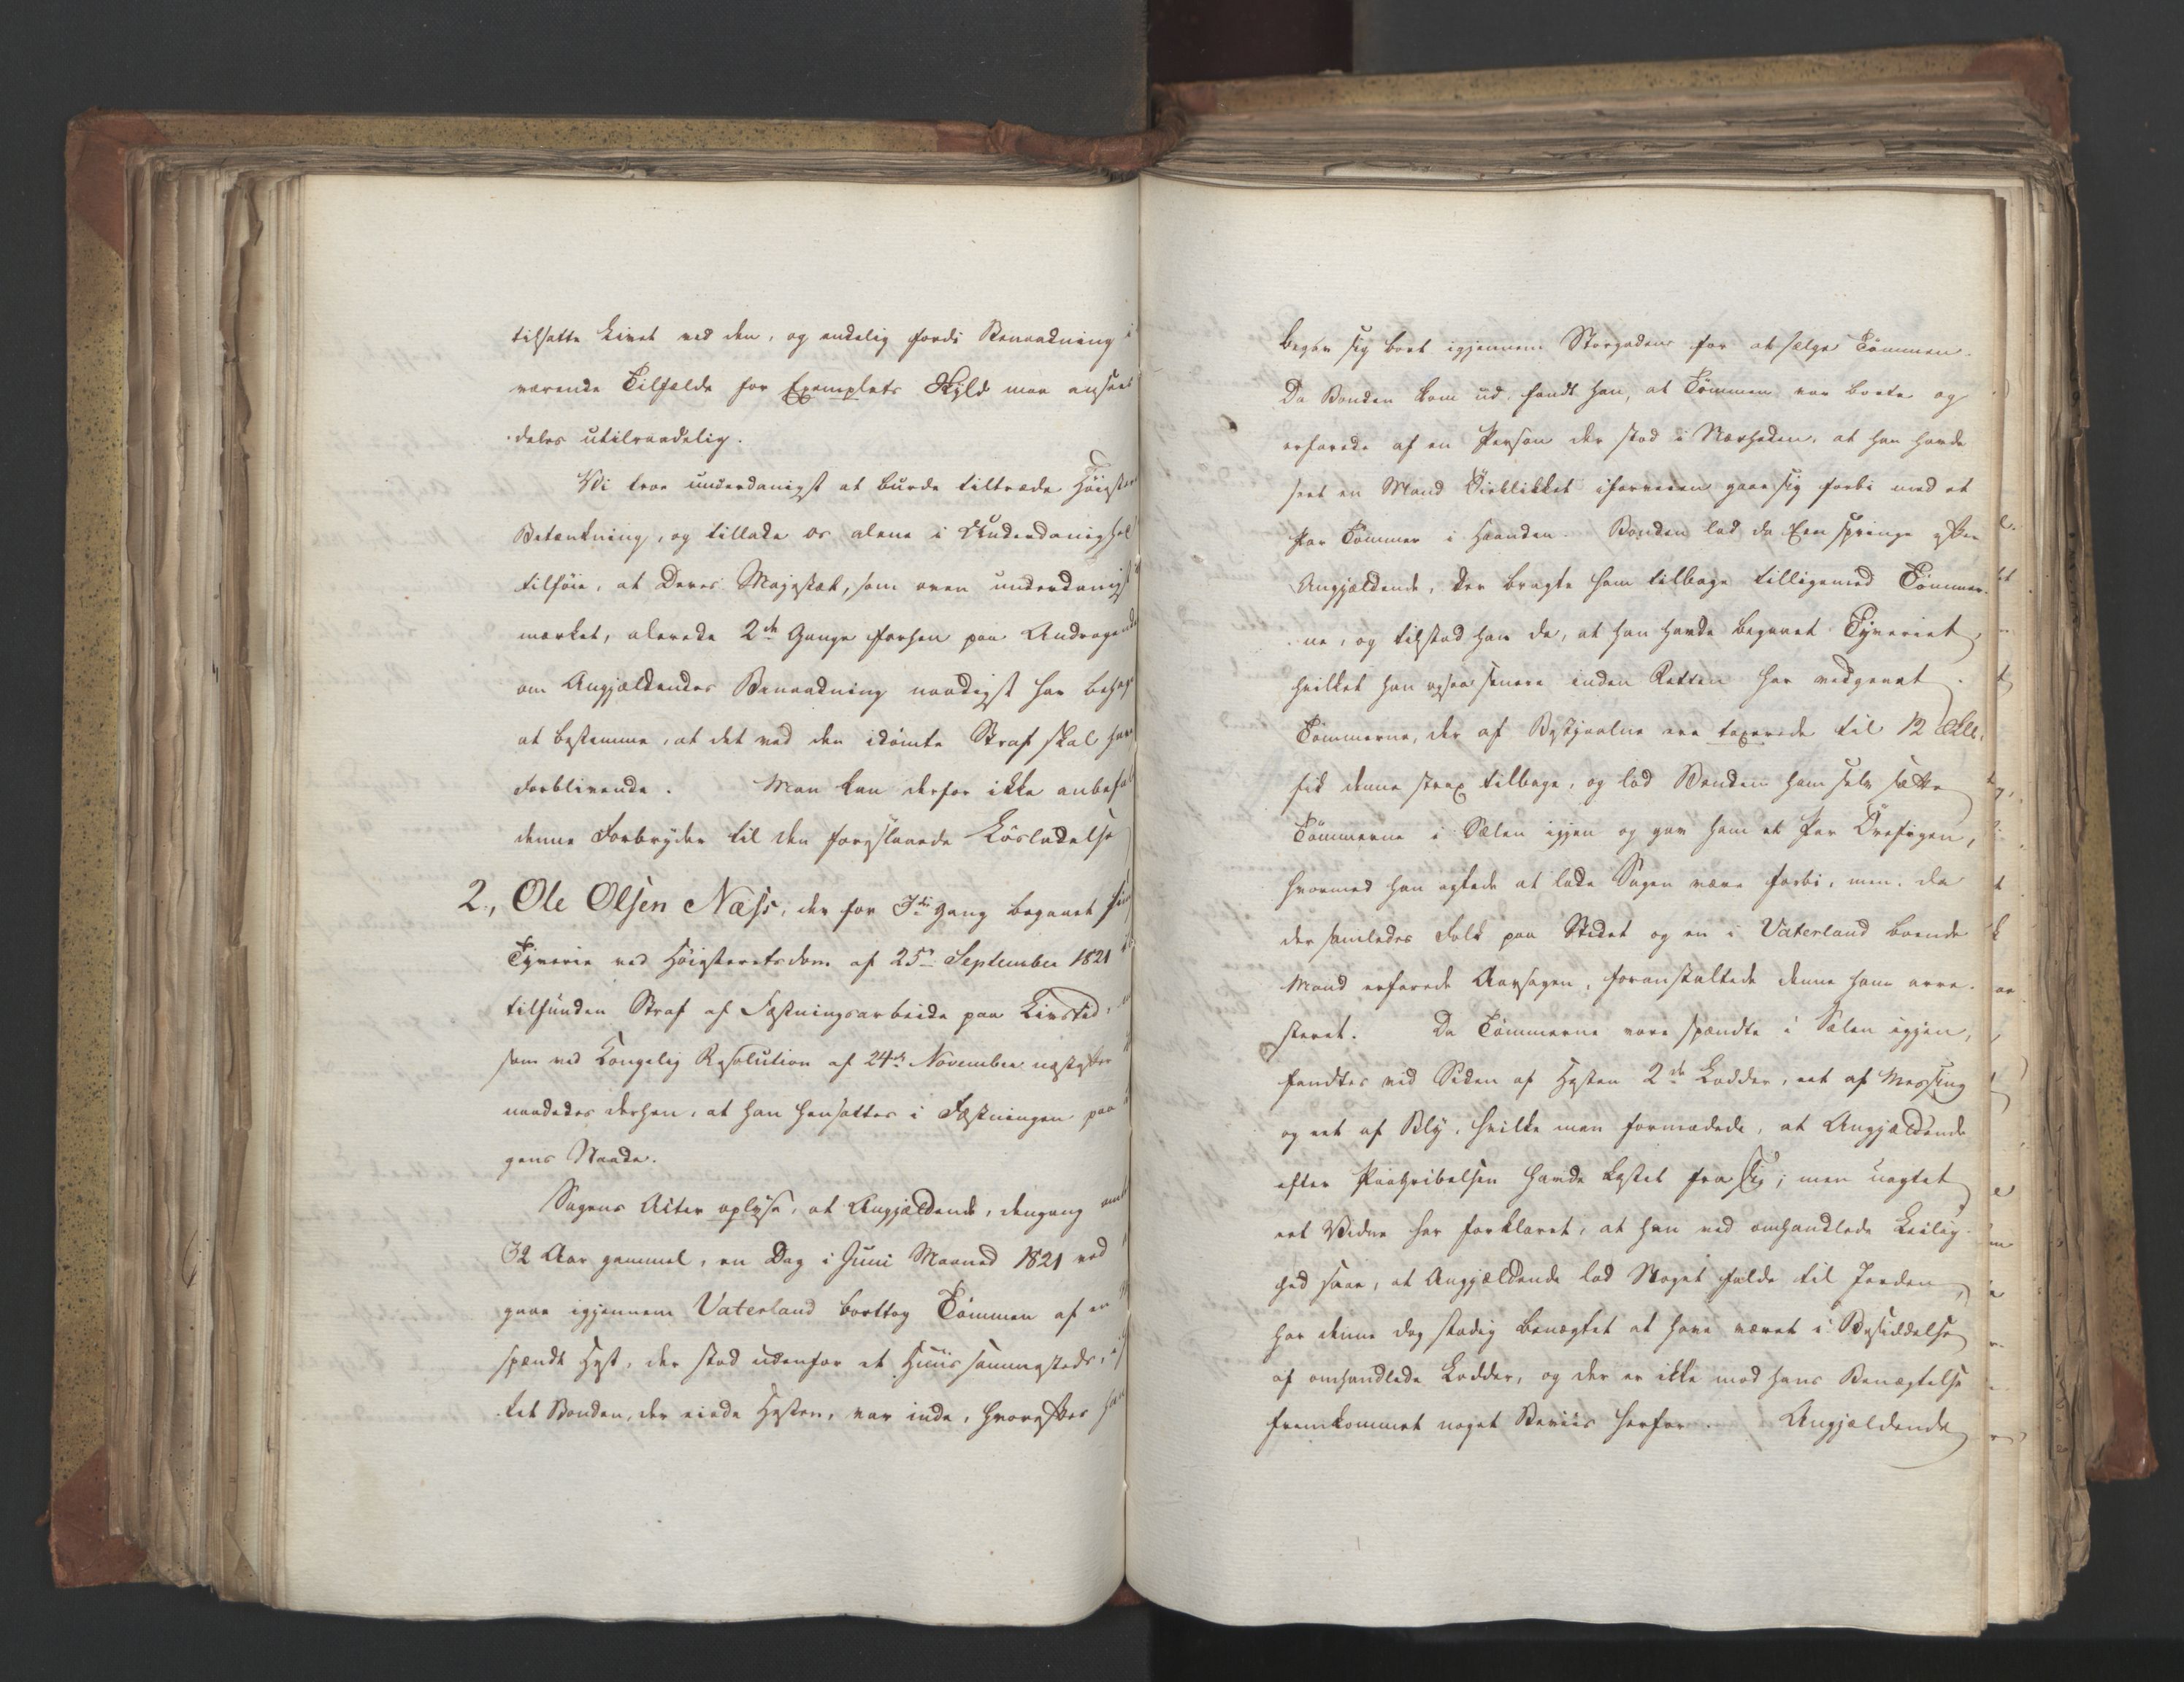 tilsatte Livet ved den, og endelig fordi Benaadning i
værende Tilfælde for Exemplets Skyld maa ansees
deles utilraadelig.
Vi troe underdanigst at burde tiltræde Høieste
Betænkning, og tillade os alene i Underdanighed
tilføie, at Deres Majestæt, som oven underdanigst
mærket, alerede 2de Gange forhen paa Andragende
om Angjældendes Benaadning naadigst har behaget
at bestemme, at det ved den idømte Straf skal have
Forblivende. Man kan derfor ikke anbefale
denne Forbryder til den foreslaaede Løsladelse
2., Ole Olsen Næss, der for 3die Gang begaaet
Tyverie ved Høiesteretsdom af 25de September 1821
tilfunden Straf af Fæstningsarbeide paa Livstid,
som ved Kongelig Resolution af 24de November næstefter
naadedes derhen, at han hensattes i Fæstningen paa
gens Naade.
Sagens Acter oplyse, at Angjældende, dengang
32 Aar gammel, en Dag i Juni Maaned 1821 ved
gaae igjennem Vaterland borttog Tømmen af en
spændt Hest, der stod udenfor et Huus sammesteds,
det Bonden, der eiede Hesten, var inde, hvorefter han
begav sig bort igjennem Storgaden for at sælge Tømmen.
Da Bonden kom ud, fandt han, at Tømmen var borte og
erfarede af en Person der stod i Nærheden, at han havde
seet en Mand Øieblikket iforveien gaae sig forbi med et
Par Tømmer i Haanden. Bonden lod da Een springe efter
Angjældende, der bragte ham tilbage tilligemed Tømmer-
ne, og tilstod han da, at han havde begaaet Tyveriet,
hvilket han ogsaa senere inden Retten har vedgaaet.
Tømmerne, der af Bestjaalne ere taxerede til 12
fik denne strax tilbage, og lod Bonden ham selv sætte
Tømmerne i Sælen igjen og gav ham et Par Ørefigen,
hvormed han agtede at lade Sagen være forbi, men, da
der samledes Folk paa Stedet og en i Vaterland boende
Mand erfarede Aarsagen, foranstaltede denne ham arre-
steret. Da Tømmerne vare spændte i Sælen igjen,
fandtes ved Siden af Hesten 2de Lodder, eet af Messing
og eet af Bly, hvilke man formodede, at Angjældende
efter Paagribelsen havde kastet fra sig; men uagtet
eet Vidne har forklaret, at han ved omhandlede Leilig-
hed saae, at Angjældende lod Noget falde til Jorden,
har denne dog stadig benægtet at have været i Besiddelse
af omhandlede Lodder, og der er ikke mod hans Benægtelse
fremkommet noget Beviis herfor. Angjældende